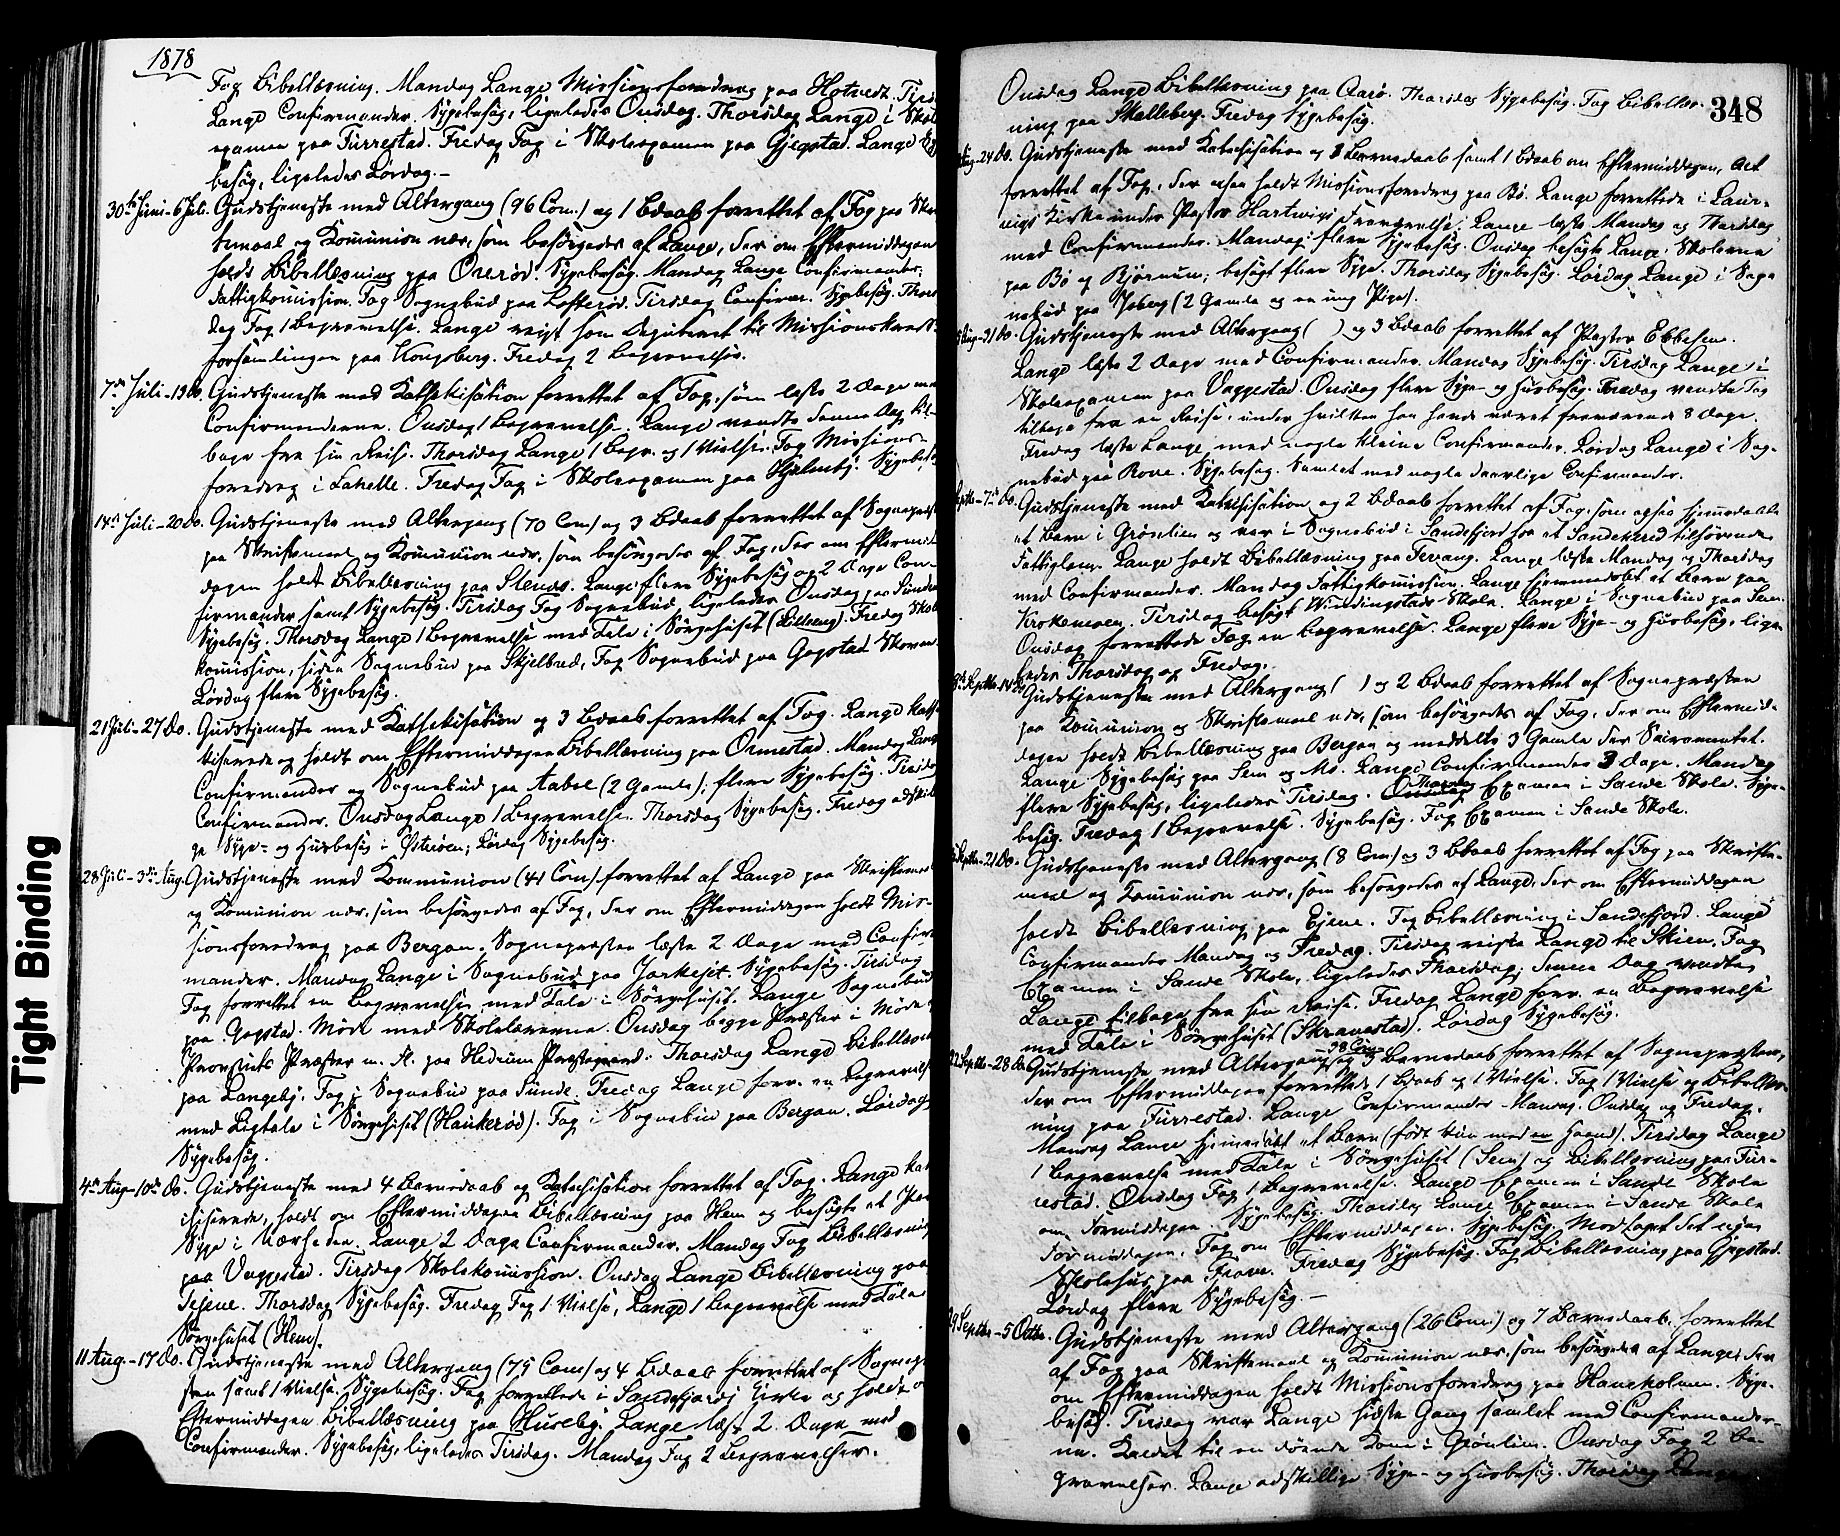 1878
Fog Bibellæsning. Mandag Lange Missionsforedrag paa Hotvedt. Tirs
Lange Confirmander. Sygebesøg, ligeledes Onsdag. Thorsdag Lange i Skole
examen paa Furrestad. Fredag Fog i Skoleexamen paa Gjegstad. Lange Sy
besøg, ligeledes Lørdag.–
30te Juni–6 Juli. Gudstjeneste med Altergang (96 Com.) og 1 Bdaab forrettet af Fog paa Skrif
temaal og Kommunion nær, som besørgedes af Lange, der om Eftermiddagen
holdt Bibellæsning paa Orerød. Sygebesøg. Mandag Lange Confirmander;
Fattigkommission. Fog Sognebud paa Loftsrød. Tirsdag Confirm. Sygebesøg. Thors
dag Fog 1 Begravelse. Lange reist som Deputeret til Missionskreds-
forsamlingen paa Kongsberg. Fredag 2 Begravelser.
7de Juli–13 do. Gudstjeneste med Kathekisation forrettet af Fog, som læste 2 Dage med
Confirmanderne. Onsdag 1 Begravelse. Lange vendte denne Dag til-
bage fra sin Reise. Thorsdag Lange 1 Begr. og 1 Vielse. Fog Missions-
foredrag i Lahelle. Fredag Fog i Skoleexamen paa Hjelmby. Sygebesø
14de Juli–20 do. Gudstjeneste med Altergang (70 Com) og 3 Bdaab forrettet af Sognepræst
paa Skriftemaal og Kommunion nær, som besørgedes af Fog, der om Eftermid
dagen holdt Bibellæsning paa Slends. Lange flere Sygebesøg og 2 Dage Con-
firmander samt Sygebesøg. Tirsdag Fog Sognebud, ligeledes Onsdag paa Sunde
Sygebesøg. Thorsdag Lange 1 Begravelse med Tale i Sørgehuset (Lilleeng). Fredag Skole
kommission, siden Sognebud paa Skjelbred, Fog Sognebud paa Gogstad Skoven
Lørdag flere Sygebesøg.
21 Juli–27 do. Gudstjeneste med Kathekisation og 3 Bdaab forrettet af Fog. Lange kathe
kiserede og holdt om Eftermiddagen Bibellæsning paa Ormestad. Mandag Lange
Confirmander og Sognebud paa Aabol (2 Gamle); flere Sygebesøg. Tirsdag
Confirmander. Onsdag Lange 1 Begravelse. Thorsdag Sygebesøg. Fredag adskilli
ge Syge- og Husbesøg i Østerøen; Lørdag Sygebesøg.
28 Juli–3de Aug. Gudstjeneste med Kommunion (41 Com) forrettet af Lange paa Skriftemaal
og Kommunion nær, som besørgedes af Fog, der om Eftermiddagen holdt Mis-
sionsforedrag paa Bergan. Sognepræsten læste 2 Dage med Confir
mander. Mandag Lange i Sognebud paa Sygebesøg. Tirsdag
Fog forrettet en Begravelse med Tale i Sørgehuset. Lange Sognebud
paa Gogstad. Møde med Skolelærerne. Onsdag begge Præster i Møde
Provstiets Præster m. Fl. paa Hedrum Præstegaard. Thorsdag Lange Bibellæsn
paa Langeby. Fog i Sognebud paa Sunde. Fredag Lange forr. en Begravelse
med Ligtale i Sørgehuset (Haukerød). Fog i Sognebud paa Bergan. Lørdag
Sygebesøg.
4de Aug–10de do. Gudstjeneste med 4 Barnedaab og Katechisation forrettet af Fog. Lange kat
echiserede, holdt om Eftermiddagen Bibellæsning paa Hem og besøgte et Par
Syge i Nærheden. Lange 2 Dage Confirmander. Mandag Fog Bibellæsning
paa Vaggestad. Tirsdag Skolekommission. Onsdag Lange Bibellæsning paa
Thorsdag Sygebesøg. Fredag Fog 1 Vielse, Lange 1 Begravelse med Tale
Sørgehuset (Hem).
11 Aug.–17 do. Gudstjeneste med Altergang (75 Com) og 4 Bdaab forrettet af Sognepræ
sten samt 1 Vielse. Sygebesøg. Fog forrettede i Sandefjords Kirke og holdt
Eftermiddagen Bibellæsning paa Huseby. Lange læste 2 Dage med
Confirmander. Sygebesøg, ligeledes Tirsdag. Mandag Fog 2 Begravelser.
348
Onsdag Lange Bibellæsning paa Aarø. Thorsdag Sygebesøg. Fog Bibellæs-
ning paa Skalleberg. Fredag Sygebesøg.
Aug–24 do. Gudstjeneste med Katechisation og 8 Barnedaab samt 1 Bdaab om Eftermiddagen, Alt
forrettet af Fog, der ogsaa holdt Missionsforedrag paa Bø. Lange forrettede i Laur-
vigs Kirke under Pastor Hartwigs Fraværelse. Lange læste Mandag og Thorsdag
med Confirmander. Mandag flere Sygebesøg. Onsdag besøgte Lange Skolerne
paa Bø og Bjørnum; besøgt flere Syge. Thorsdag Sygebesøg. Lørdag Lange i Sog-
nebud paa (2 Gamle og en ung Pige).
Aug–31 do. Gudstjeneste med Altergang ( ) og 3 Bdaab forrettet af Pastor Ebbesen.
Lange læste 2 Dage med Confirmander. Mandag Sygebesøg. Tirsdag Lange i
Skoleexamen paa Vaggestad. Onsdag flere Syge- og Husbesøg. Fredag vendte Fog
tilbage fra en Reise, under hvilken han havde været fraværende 8 Dage.
Fredag læste Lange med nogle kleine Confirmander. Lørdag Lange i Sog-
nebud paa Rove. Sygebesøg. Samlet med nogle daarlige Confirmander.
Septbr–7de do. Gudstjeneste med Katechisation og 2 Bdaab forrettet af Fog, som ogsaa hjemmedøbte
et Barn i Grønlien og var i Sognebud i Sandefjord hos et Sandeherred tilhørende
Fattiglem. Lange holdt Bibellæsning paa Jevang. Lange læste Mandag og Thorsdag
med Confirmander. Mandag Fattigkommission. Lange hjemmedøbt et Barn paa
Krokemoen. Tirsdag besøgt Virdingstads Skole. Lange i Sognebud paa Sem.
Onsdag forrettede Fog en Begravelse. Lange flere Syge- og Husbesøg, lige-
ledes Thorsdag og Fredag.
8de Septbr–14de Gudstjeneste med Altergang ( ) og 2 Bdaab forrettet af Sognepræsten
paa Kommunion og Skriftemaal nær, som besørgedes af Fog, der om Eftermid-
dagen holdt Bibellæsning paa Bergan og meddelte 3 Gamle der Sacramentet.
Lange Sygebesøg paa Sem og Mo. Lange Confirmander 3 Dage. Mandag
flere Sygebesøg, ligeledes Tirsdag. Thorsdag Examen i Sande Skole. Syge-
besøg. Fredag 1 Begravelse. Sygebesøg. Fog Examen i Sande Skole.
Septbr–21 do. Gudstjeneste med Altergang (8 Com) og 3 Bdaab forrettet af Fog paa Skrifte-
maal og Kommunion nær, som besørgedes af Lange, der om Eftermiddagen
holdt Bibellæsning paa Ejene. Fog Bibellæsning i Sandefjord. Lange
Confirmander Mandag og Fredag. Tirsdag reiste Lange til Skien, Fog
Examen i Sande Skole, ligeledes Thorsdag; denne Dag vendte
Lange tilbage fra sin Reise. Fredag Lange forr. en Begravelse
med Tale i Sørgehuset (Skravestad). Lørdag Sygebesøg.
22 Septbr–28 do. Gudstjeneste med Altergang 28 Com og Barnedaab forrettet af Sognepræsten,
der om Eftermiddagen forrettede 1 Bdaab og 1 Vielse. Fog 1 Vielse og Bibellæs-
ning paa Furrestad. Lange Confirmander Mandag. Onsdag og Fredag.
Mandag Lange hjemmedøbt et Barn (født kun med en Haand). Tirsdag Lange
1 Begravelse med Tale i Sørgehuset (Sem) og Bibellæsning paa Fur-
restad. Onsdag Fog 1 Begravelse. Lange Examen i Sande Skole
om Formiddagen. Sygebesøg. Thorsdag Lange Examen i Sande Skole
Formiddagen, Fog om Eftermiddagen. Sygebesøg. Modtaget det nye
Skolehus paa Fredag Sygebesøg. Fog Bibellæsning paa Gjegstad.
Lørdag flere Sygebesøg.–
29 Septbr–5 Octbr. Gudstjeneste med Altergang (26 Com) og 7 Barnedaab, forrettet
af Fog paa Skriftemaal og Kommunion nær, som besørgedes af Lange, der
om Eftermiddagen holdt Missionsforedrag paa Haneholmen. Syge-
besøg. Tirsdag var Lange sidste Gang samlet med Confirmander-
ne. Kaldet til en døende Kone i Grønlien. Onsdag Fog 2 Be-
gravelser. Lange adskillige Syge- og Husbesøg. Thorsdag Lange
Tight Binding